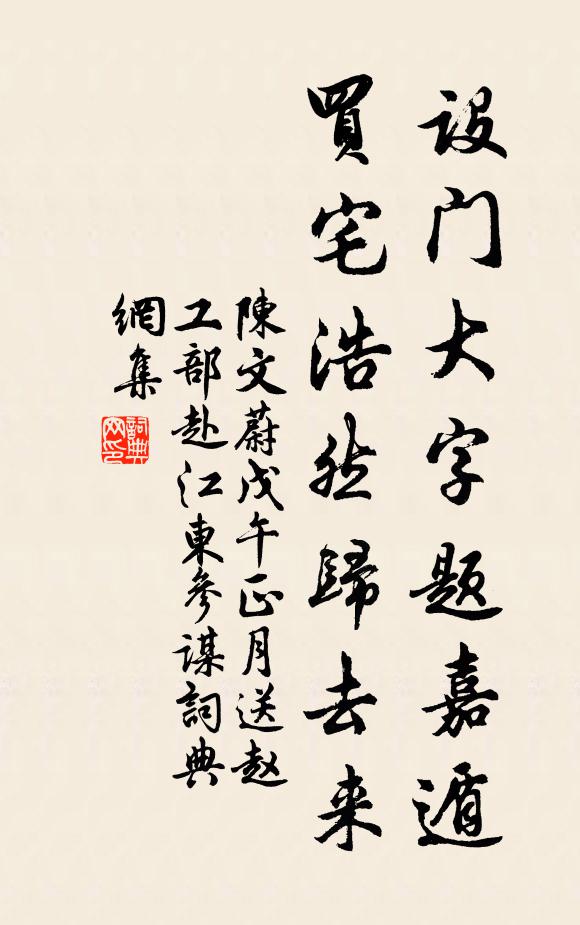 设门大字题嘉遁
買宅浩然歸去来
陳文蔚戊午正月送赵
工部赴江東參謀詞典
網集
詞典
网印